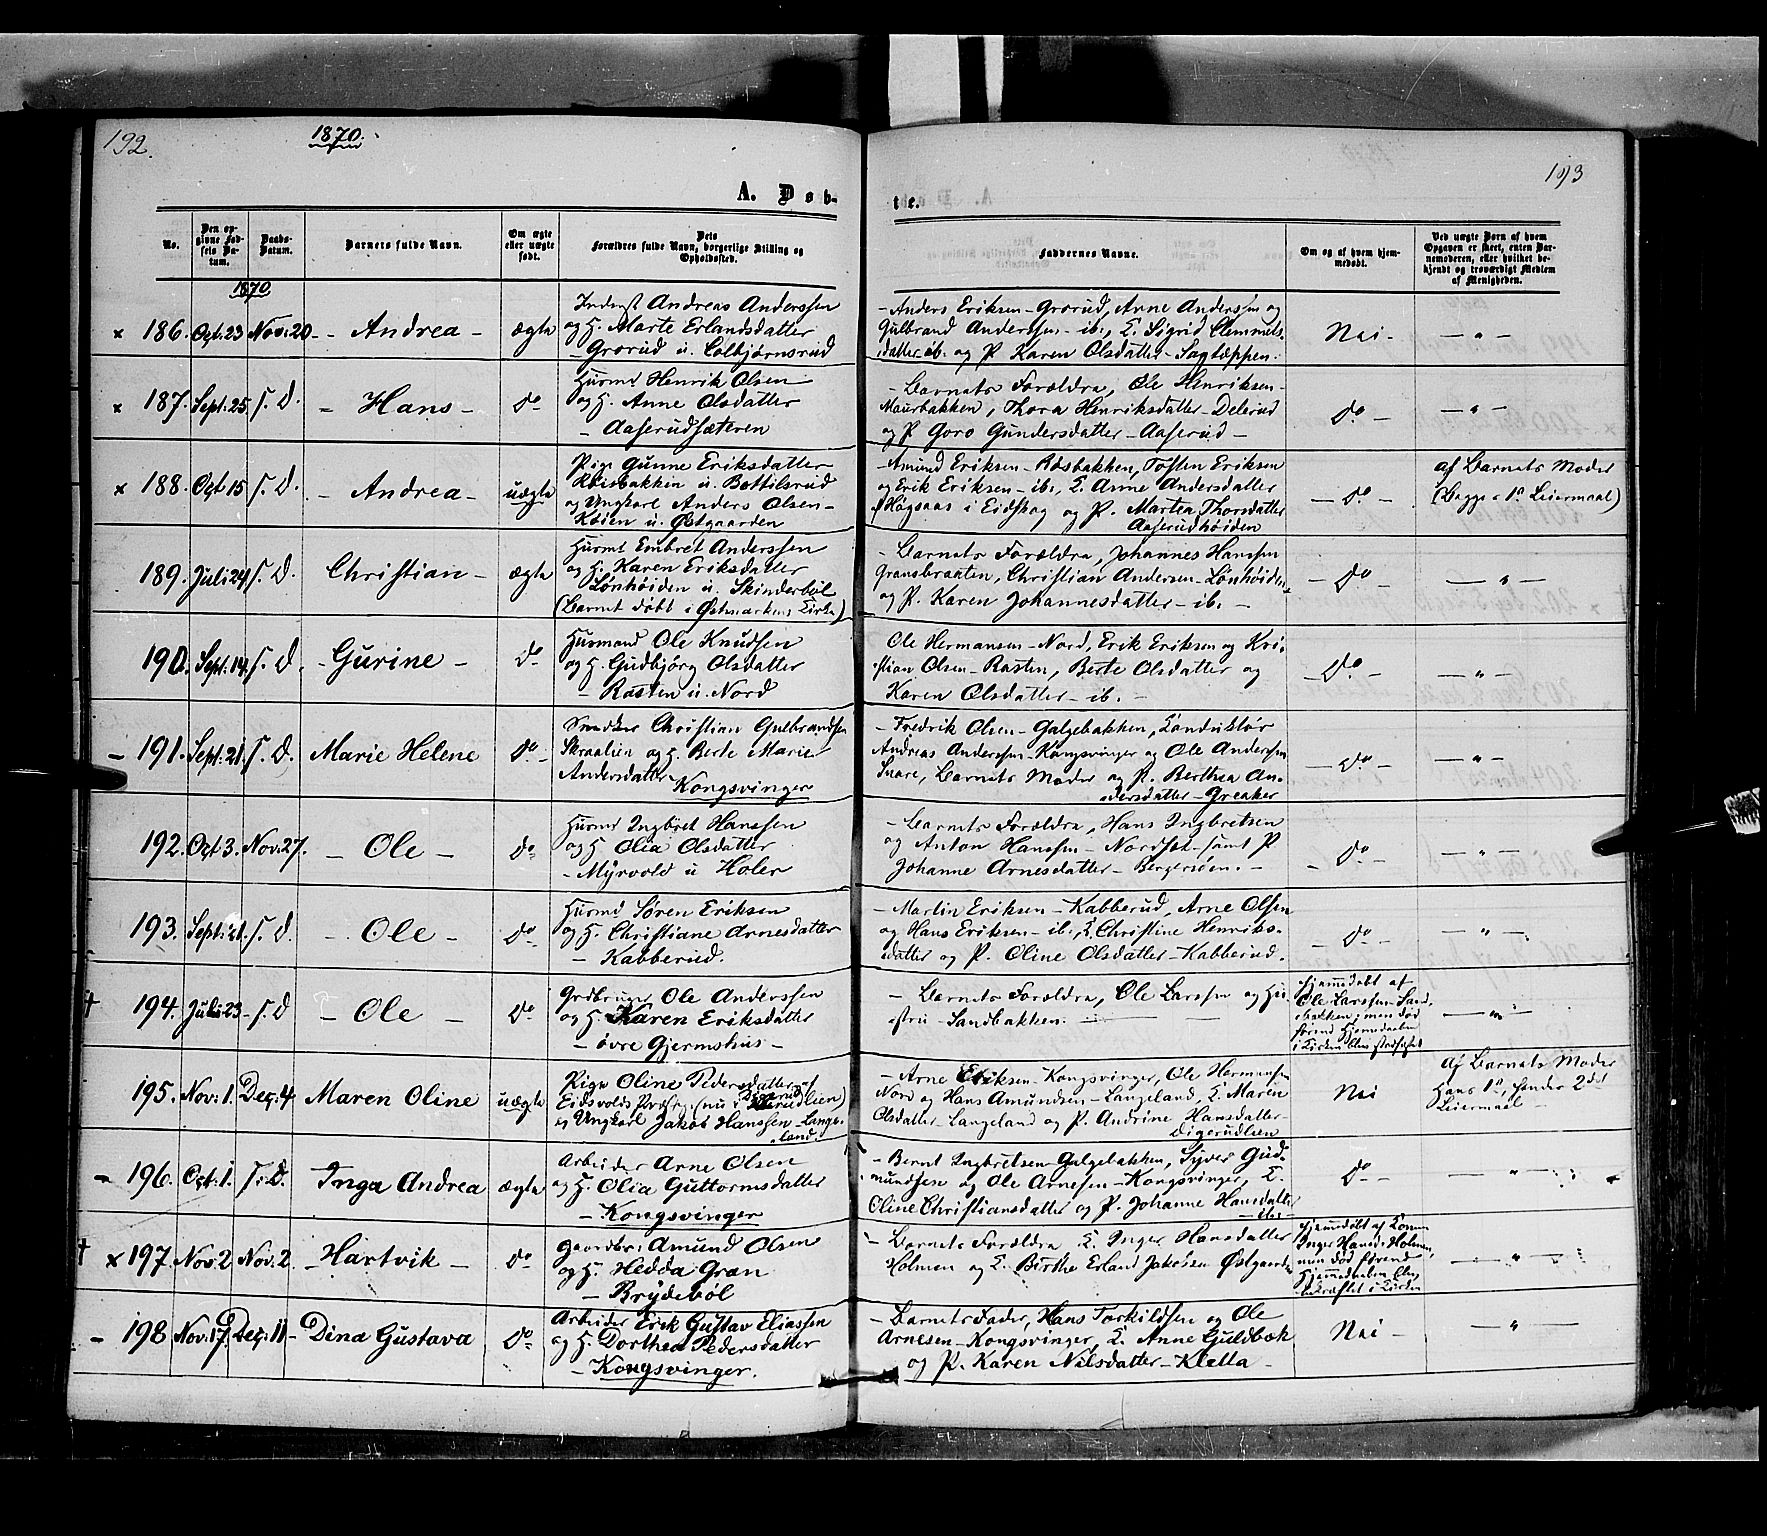 192.
1870.
193
A. Døb-
te.
No.
Den op-
givne Fød-
sels Da-
tum.
Daabs-
Datum.
Barnets fulde Navn.
Om ægte
eller uægte
født.
Dets
Forældres fulde Navn, borgerlige Stilling og
Opholdssted.
Faddernes Navne.
Om og af hvem hjem-
medøbt.
Ved uægte Børn af hvem
Opgaven er skeet, enten Bar-
nemoderen, eller hvilket be-
kjendt og troværdigt Medlem
af Menigheden.
1870
x 186. Oct: 23 Nov: 20 - Andrea - ægte
Inderst Andreas Anderssen
og H. Marte Erlandsdatter
- Grorud u. Colbjørnsrud
- Anders Eriksen - Grorud, Arne Anderssen og
Gulbrand Anderssen - ib:, K. Sigrid Clemmets-
datter ib. og P. Karen Olsdatter - Sagtæppen.
Nei - - " -
x 187. Sept: 25 S. D. - Hans - do
Husmd Henrik Olsen
og H. Anne Olsdatter
- Aaserudsæteren
- Barnets Forældre, Ole Henriksen -
Maurbakken, Thora Henriksdatter - Delerud
og P. Goro Gundersdatter - Aaserud -
do - - " -
x 188. Oct 15 S. D. - Andrea - uægte
Pige Gunne Eriksdatter
u. Bottilsrud
og Ungkarl Anders Olsen -
Køien u. Østgaarden
- Amund Eriksen - Røsbakken, Tosten Eriksen
og Erik Eriksen - ib:, K. Anne Andersdatter
Høgsaas i Eidskog og P. Martea Thorsdatter
Aaserudhøiden
- do -
af Barnets Moder
(Begges 1ste Leiermaal)
189. Juli 24. S. D. Christian - ægte
Husmd Embret Anderssen
og H. Karen Eriksdatter
Lønhøiden u. Skinderbøl
(Barnet døbt i Østmarkens Kirke)
- Barnets Forældre, Johannes Hanssen
Gransbraaten, Christian Andersen - Lønhøiden
og P. Karen Johannesdatter - ib: -
- do - - " -
190. Sept: 14. S. D. - Gurine - do
Husmand Ole Knudsen
og H. Gudbjørg Olsdatter
- Rasten u. Nord
Ole Hermansen - Nord, Erik Eriksen og Kri-
stian Olsen - Rasten, Berte Olsdatter og
Karen Olsdatter - ib. -
do. - - " -
- 191. Sept: 21. S. D. Marie Helene do -
Snedker Christian Gulbrandsen
Skraalien og H. Berte Marie
Andersdatter
Kongsvinger
- Fredrik Olsen - Galgebakken,
Andreas Anderssen - Kongsvinger og Ole Anderssen
Snare, Barnets Moder og P. Berthea An-
dersdatter - Greaker
- do - - " -
192. Oct 3. Nov: 27. - Ole - do
Husmd Ingbret Hanssen
og H. Olia Olsdatter
- Myrvold u Holer
- Barnets Forældre, Hans Ingbretsen
og Anton Hanssen - Nordset - samt P
Johanne Arnesdatter - Bergersøen. -
- do - - " -
193. Sept: 21. S. D. - Ole - do
Husmd Søren Eriksen
og H. Christiane Arnesdatter
- Kabberud.
- Martin Eriksen - Kabberud, Arne Olsen
og Hans Eriksen - ib:, K Christine Henriks-
datter og P. Oline Olsdatter - Kabberud.
- do - - " -
† 194. Juli: 23 - S. D - Ole - do
Grdbruger Ole Anderssen
og H. Karen Eriksdatter
- øvre Gjermshus -
- Barnets Forældre, Ole Larssen og Hu-
stru - Sandbakken. -
Hjemmedøbt af
Ole Larssen - Sand-
bakken; men død
førend Hjemmedaaben
i Kirken blev stadfæstet
- " -
195. Nov: 1. Dec: 4 Maren Oline uægte
Pige Oline Pedersdatter af
Eidsvolds Præstgj. (nu i Digerudlien)
og Ungkarl Jakob Hanssen - Lange-
land.
- Arne Eriksen - Kongsvinger, Ole Hermansen
Nord og Hans Amundsen - Langeland, K. Maren
Olsdatter - Langeland og P. Andrine Hansdatter -
Digerudlien
Nei
af Barnets Moder
Hans 1ste, hendes 2det
Leiermaal -
- 196. Oct: 1. S. D. Inga Andrea ægte
Arbeider Arne Olsen
og H. Olia Guttormsdatter
- Kongsvinger
- Bernt Ingbretsen - Galgebakken, Syver Gud-
mundsen og Ole Arnesen - Kongsvinger, K.
Oline Christiansdatter og P. Johanne Hansdatter
ib: -
do - - " -
† x 197. Nov: 2 Nov: 2 - Hartvik - do
Gaardbr: Amund Olsen
og H. Hedda Gran
- Brydebøl
- Barnets Forældre K. Inger Hansdatter
Holmen og K. Birthe Erland Jakobsen Østgaarden
Hjemmedøbt af Konen
Inger Hansd: Holmen,
men død førend
Hjemmedaaben blev
bekræftet i Kirken
- " -
- 198 Nov: 17. Dec: 11 - Dina Gustava do
Arbeider Erik Gustav Eliassen
og H. Dorthea Pedersdatter
- Kongsvinger.
- Barnets Fader, Hans Torkildsen og Ole
Arnesen - Kongsvinger, K. Anne Guldbæk
og P. Karen Nilsdatter - Kletta -
Nei - - " -